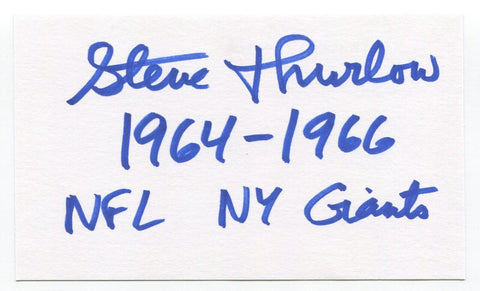 Steve Thurlow
1964-1966
NFL NY Giants